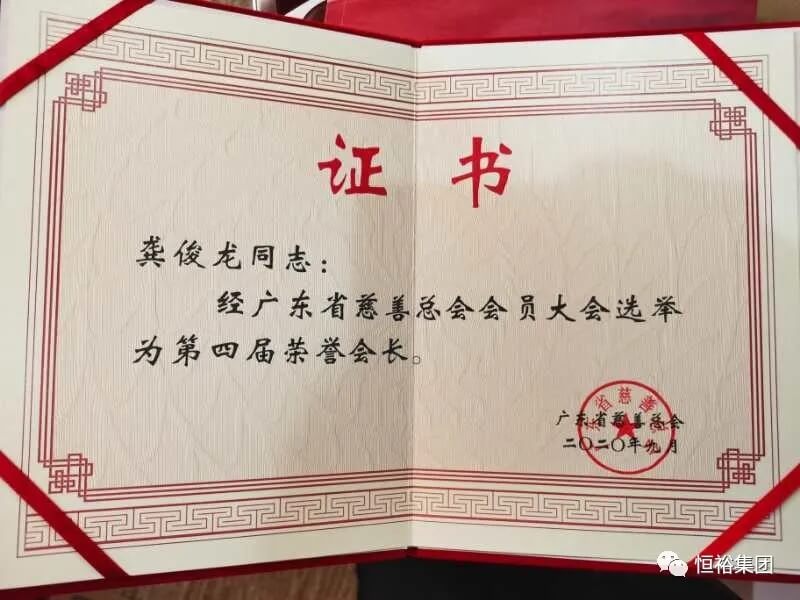 证书
龚俊龙同志：
经广东省慈善总会会员大会选举
为第四届荣誉会长。
广东省慈善总会
二〇二〇年九月
恒裕集团